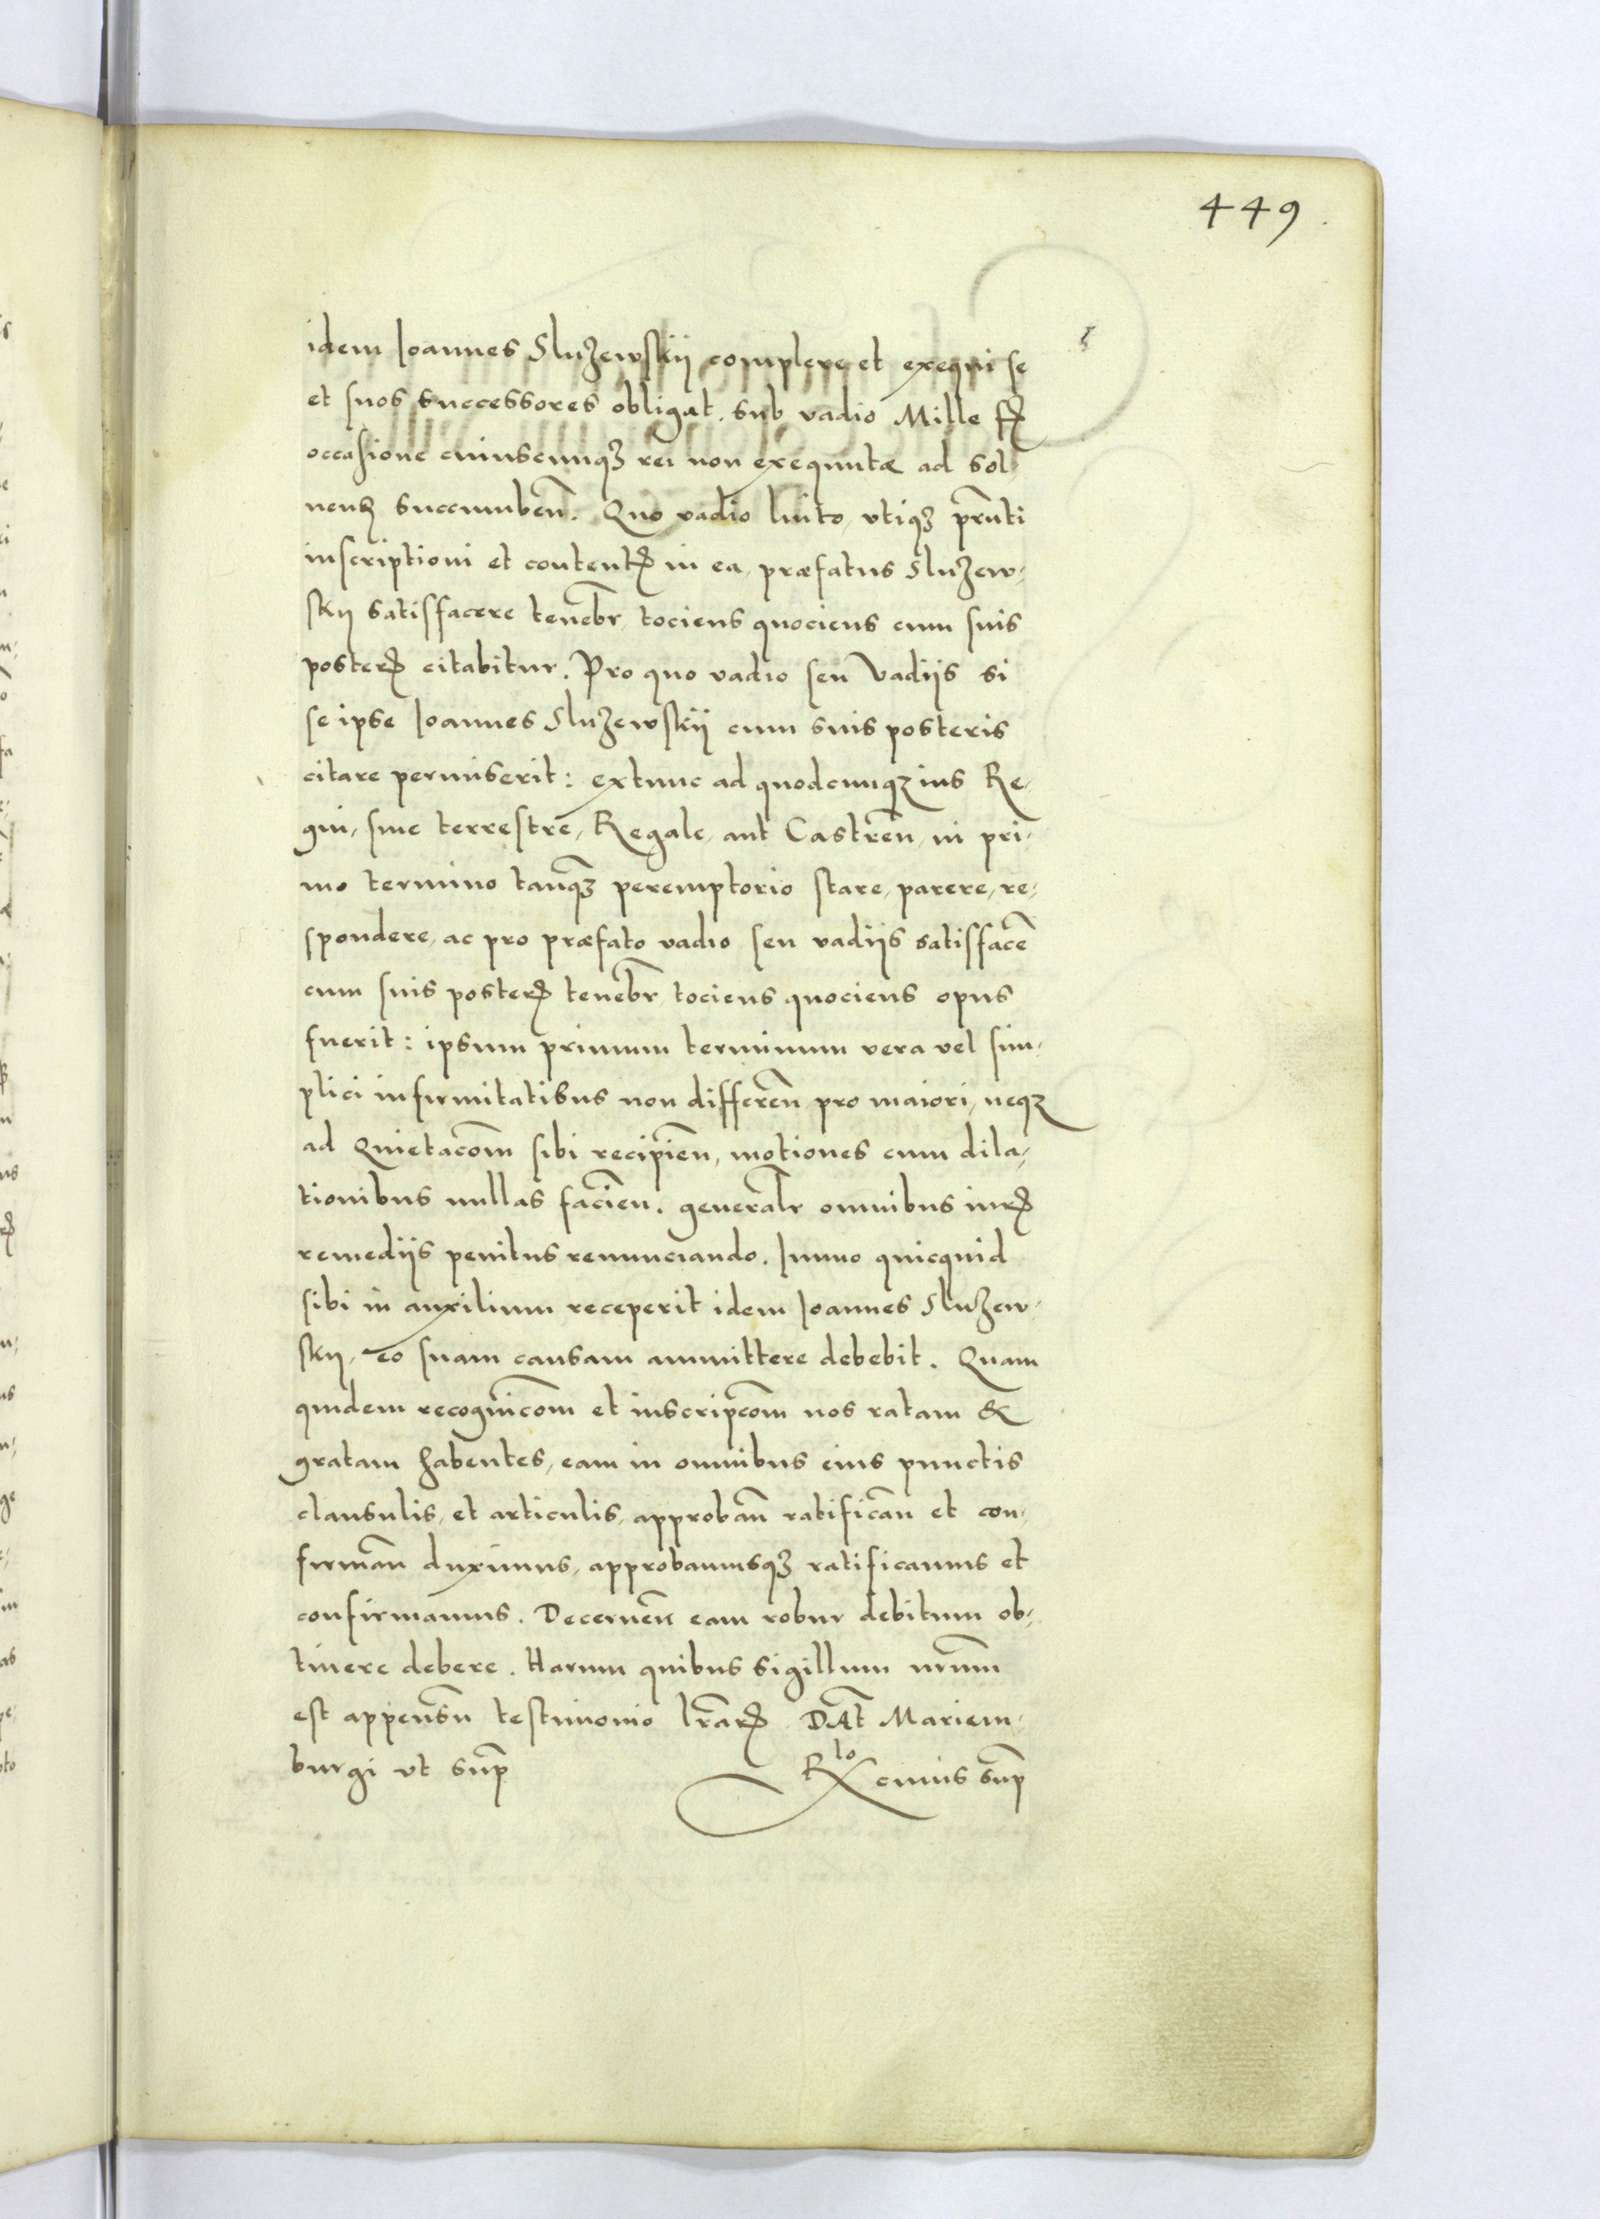 449
idem Ioannes Sluzewskii complere et exequi se
et suos successores obligat. sub vadio Mille fl
occasione cuiuscunqꝫ rei non exequutæ ad sol-
uenꝝ succumbeñ. Quo vadio luito, vtiqꝫ pr̃nti
inscriptioni et contentꝭ in ea, præfatus Sluzew-
skij satisfacere teneb̃r tociens quociens cum suis
posterꝭ citabitur. Pro quo vadio seu Vadiis si
se ipse Ioannes Sluzewskii cum suis posteris
citare permiserit: extunc ad quodcunqꝫ ius Re-
gni, siue terrestre, Regale, aut Castreñ, in pri-
mo termino tanqꝫ peremptorio stare, parere, re-
spondere, ac pro præfato vadio seu vadiis satisfacẽ
cum suis posterꝭ teneb̃r tociens quociens opus
fuerit: ipsum primum terminum vera vel sim-
plici infirmitatibus non differeñ pro maiori, neqꝫ
ad Quietacõm sibi recipieñ, motiones cum dila-
tionibus nullas facieñ. generalr̃ omnibus iurꝭ
remediis penitus renunciando. Immo quicquid
sibi in auxilium receperit idem Ioannes Sluzew-
skij, eo suam causam ammittere debebit. Quam
quidem recognicõm et inscripcõm nos ratam &
gratam habentes, eam in omnibus eius punctis
clausulis, et articulis, approbañ ratificañ et con-
firmañ duximus, approbamusqꝫ ratificamus et
confirmamus. Decerneñ eam robur debitum ob-
tinere debere. Harum quibus sigillum nr̃um
est appensũ testimonio lr̃arꝭ. DAt̃ Mariem-
burgi vt sup̃
Rlo cuius sup̃